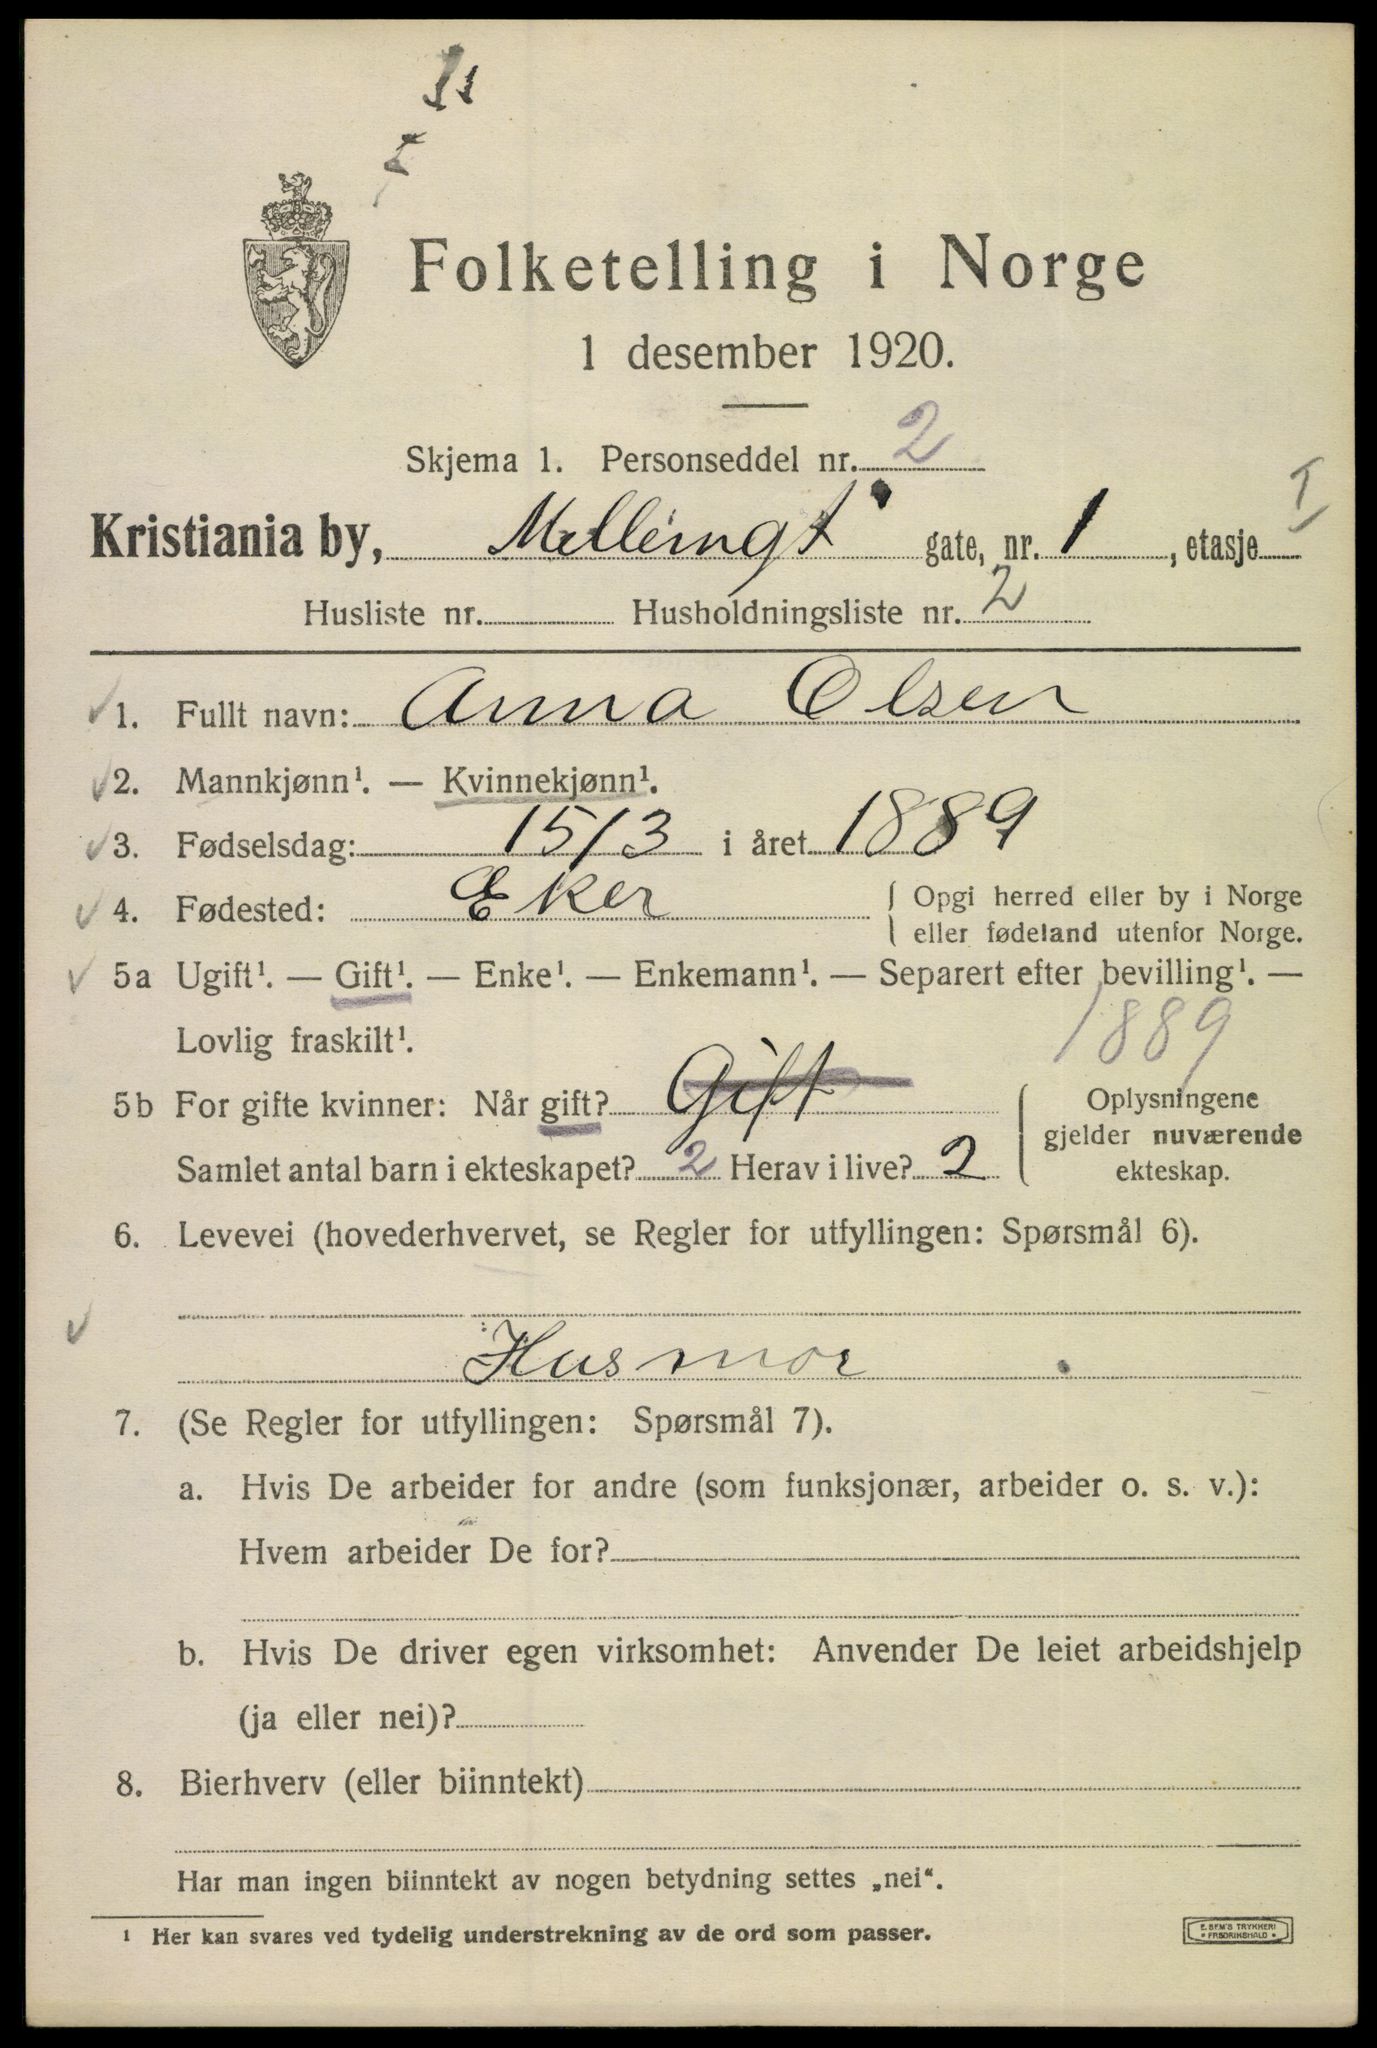 Folketelling i Norge
1 desember 1920.
Skjema 1. Personseddel nr. 2
Kristiania by, gate, nr. 1, etasje I
Husliste nr. Husholdningsliste nr. 2
1. Fullt navn: Anna Olsen
2. Mannkjønn¹. — Kvinnekjønn¹.
3. Fødselsdag: 15/3 i året 1889
4. Fødested: Eker { Opgi herred eller by i Norge
eller fødeland utenfor Norge.
5a Ugift¹. — Gift¹. — Enke¹. — Enkemann¹. — Separert efter bevilling¹. —
Lovlig fraskilt¹.
1889
5b For gifte kvinner: Når gift? Gift
Samlet antal barn i ekteskapet? 2 Herav i live? 2
Oplysningene
gjelder nuværende
ekteskap.
6. Levevei (hovederhvervet, se Regler for utfyllingen: Spørsmål 6).
Husmor
7. (Se Regler for utfyllingen: Spørsmål 7).
a. Hvis De arbeider for andre (som funksjonær, arbeider o. s. v.):
Hvem arbeider De for?
b. Hvis De driver egen virksomhet: Anvender De leiet arbeidshjelp
(ja eller nei)?
8. Bierhverv (eller biinntekt)
Har man ingen biinntekt av nogen betydning settes „nei“.
¹ Her kan svares ved tydelig understrekning av de ord som passer.
E. SEM'S TRYKKERI
• FREDRIKSHALD •